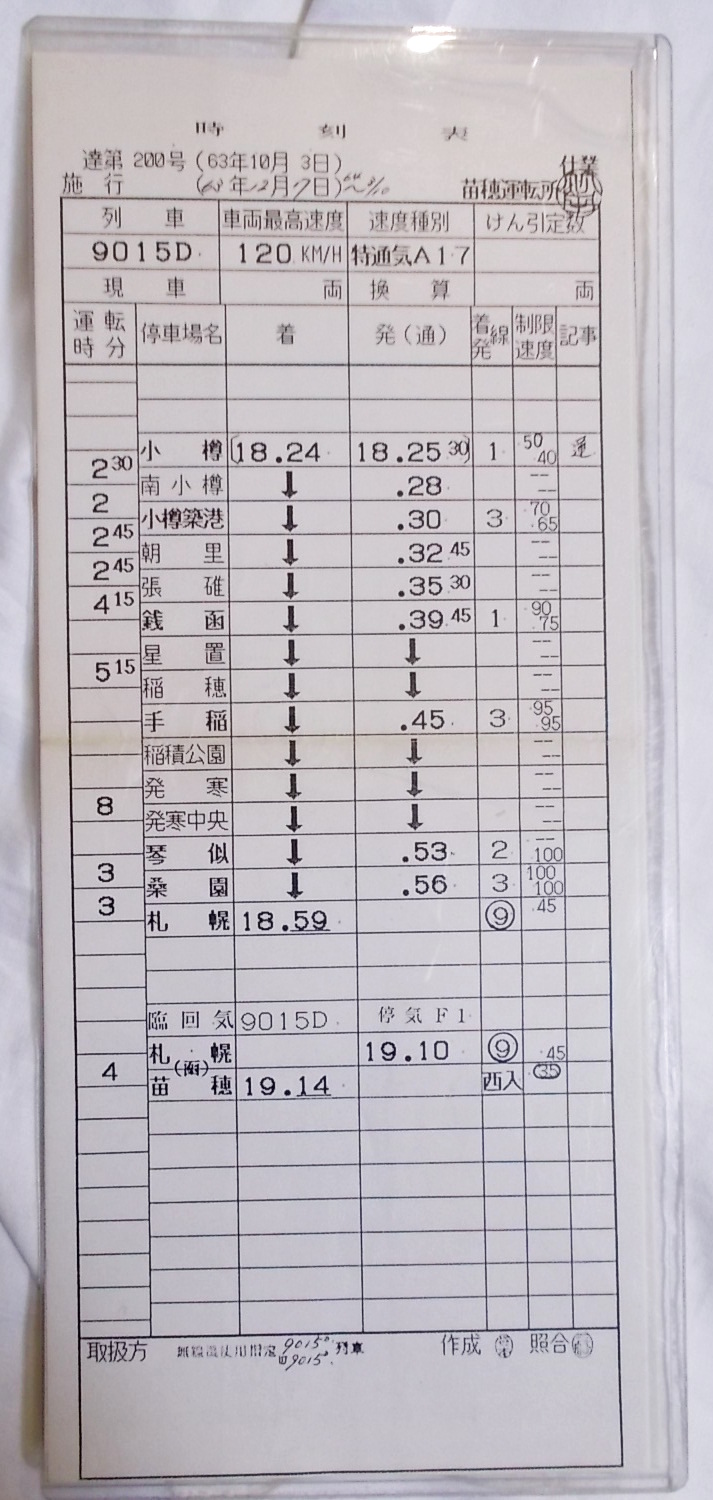 時 刻 表
達第 200号 (63年10月 3日)
施 行 (63年12月17日) 仕業
苗穂運転所
列 車 車両最高速度 速度種別 けん引定数
9015D 120 KM/H 特通気A17
現 車 両 換 算 両
運転時分 停車場名 着 発(通) 着発線 制限速度 記事
小 樽 (18.24 18.25 30) 1 50 40
2 30
南小樽 ↓ .28 -- --
2
小樽築港 ↓ .30 3 70 65
2 45
朝 里 ↓ .32 45 -- --
2 45
張 碓 ↓ .35 30 -- --
4 15
銭 函 ↓ .39 45 1 90 75
星 置 ↓ ↓ -- --
5 15
稲 穂 ↓ ↓ -- --
手 稲 ↓ .45 3 95 95
稲積公園 ↓ ↓ -- --
発 寒 ↓ ↓ -- --
8
発寒中央 ↓ ↓ -- --
琴 似 ↓ .53 2 -- 100
3
桑 園 ↓ .56 3 100 100
3
札 幌 18.59 ⑨ 45
臨回気 9015D 停気F1
札 幌 19.10 ⑨ 45
4
苗 穂 19.14 西入 35
取扱方 9015D 9015 列車 作成 照合